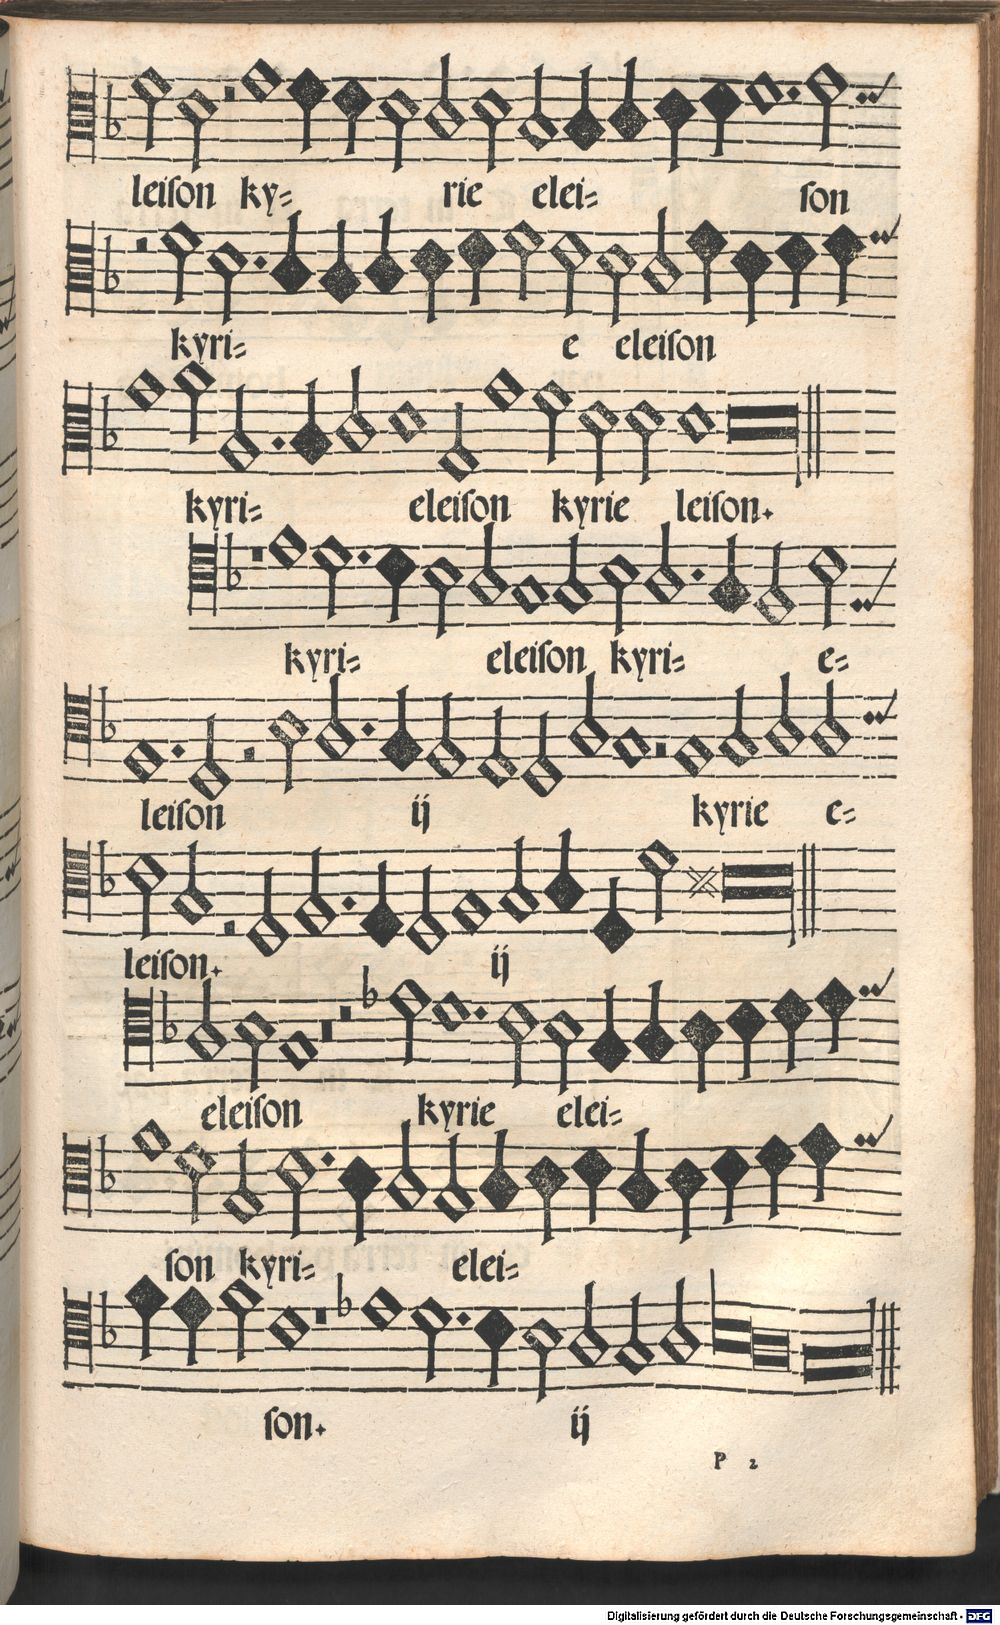 leiſon ky- rie elei- ſon
kyri- e eleiſon
kyri- eleiſon kyrie leiſon.
kyri- eleiſon kyri- e-
leiſon ij kyrie e-
leiſon. ij
eleiſon kyrie elei-
ſon kyri- elei-
ſon. ij
P 2
Digitalisierung gefördert durch die Deutsche Forschungsgemeinschaft - DFG